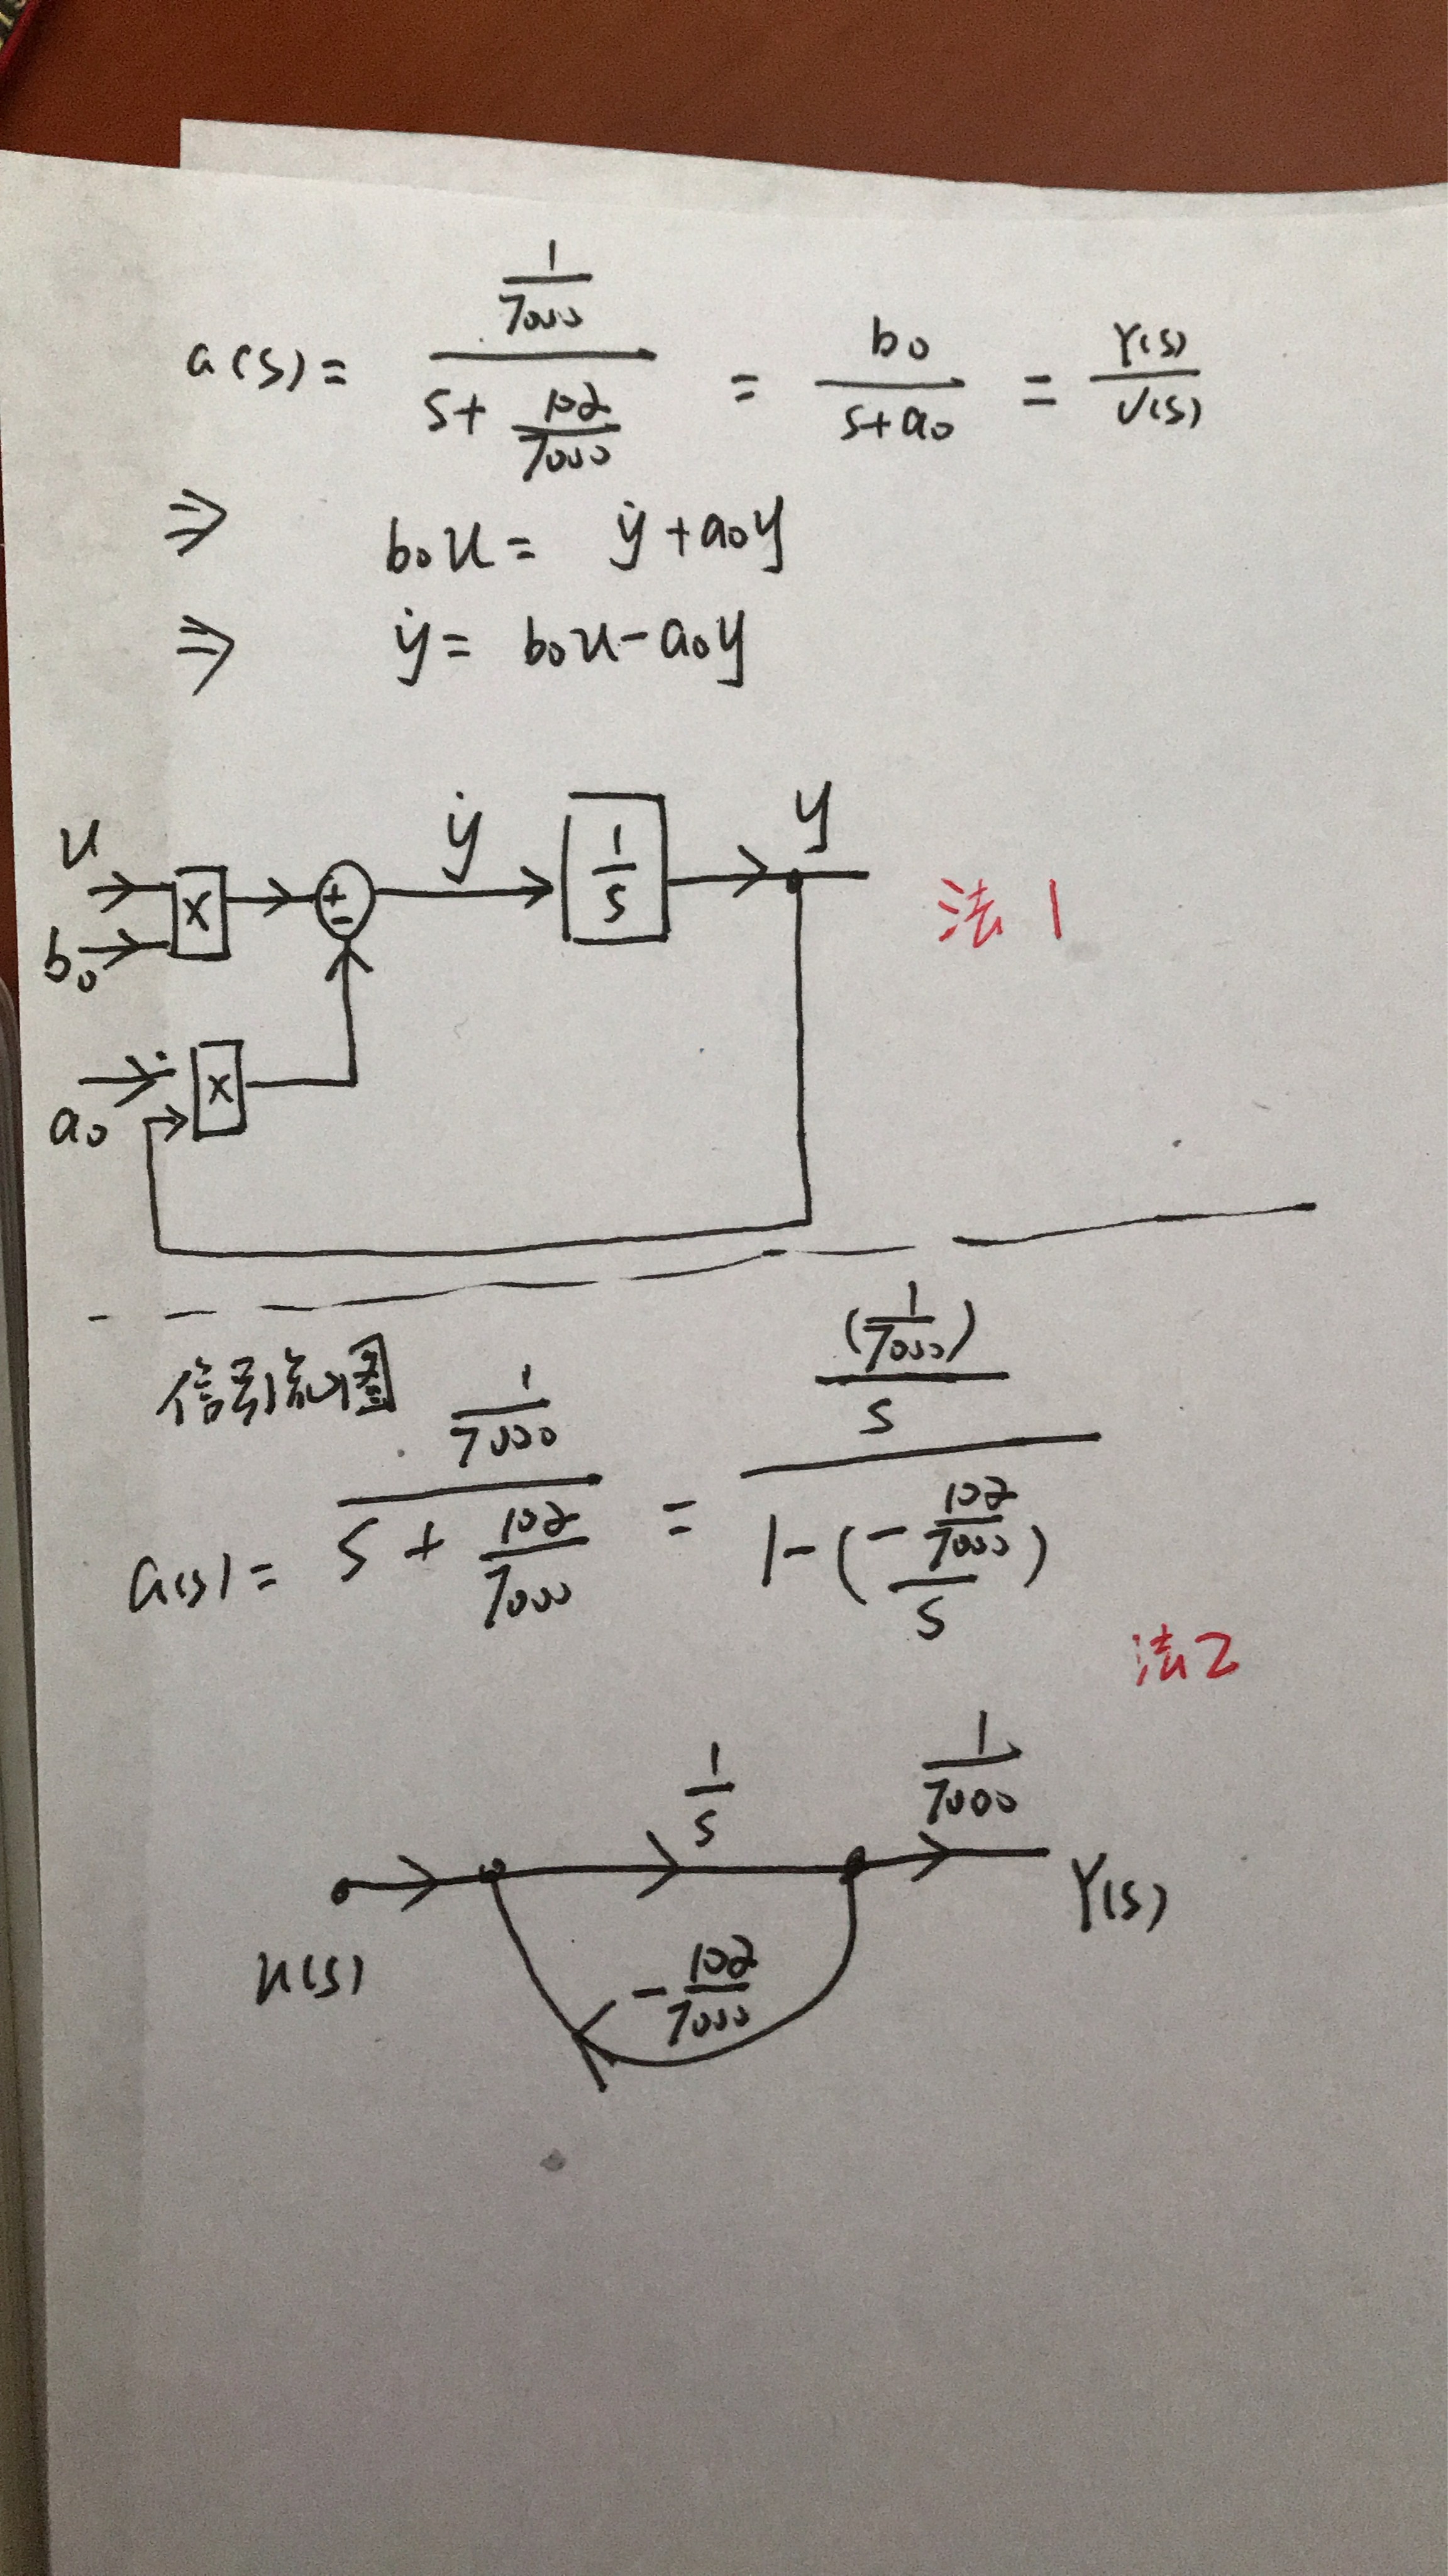 G(s) = \frac{\frac{1}{7000}}{s + \frac{102}{7000}} = \frac{b_0}{s + a_0} = \frac{Y(s)}{U(s)}
⇒ b_0 u = ẏ + a_0 y
⇒ ẏ = b_0 u - a_0 y
u
b_0
×
+
-
ẏ
\frac{1}{s}
y
法1
a_0
×
信号流图
G(s) = \frac{\frac{1}{7000}}{s + \frac{102}{7000}} = \frac{\frac{(\frac{1}{7000})}{s}}{1 - (\frac{-\frac{102}{7000}}{s})}
法2
\frac{1}{s}
\frac{1}{7000}
U(s)
Y(s)
-\frac{102}{7000}